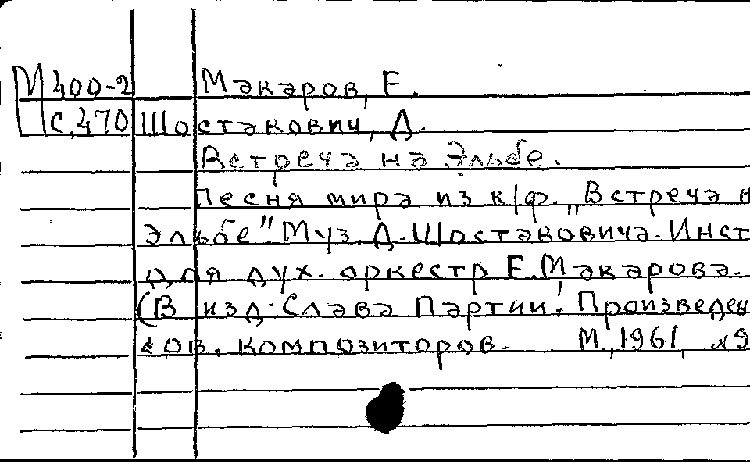 М 400-2 Макаров, Е.
С.470 Шостакович, Д.
Встреча на Эльбе.
Песня мира из к/ф. „Встреча н
Эльбе" Муз. Д. Шостаковича. Инст
для дух. оркестр Е. Макарова.
(В изд: Слава Партии. Произведен
сов. композиторов. М., 1961,